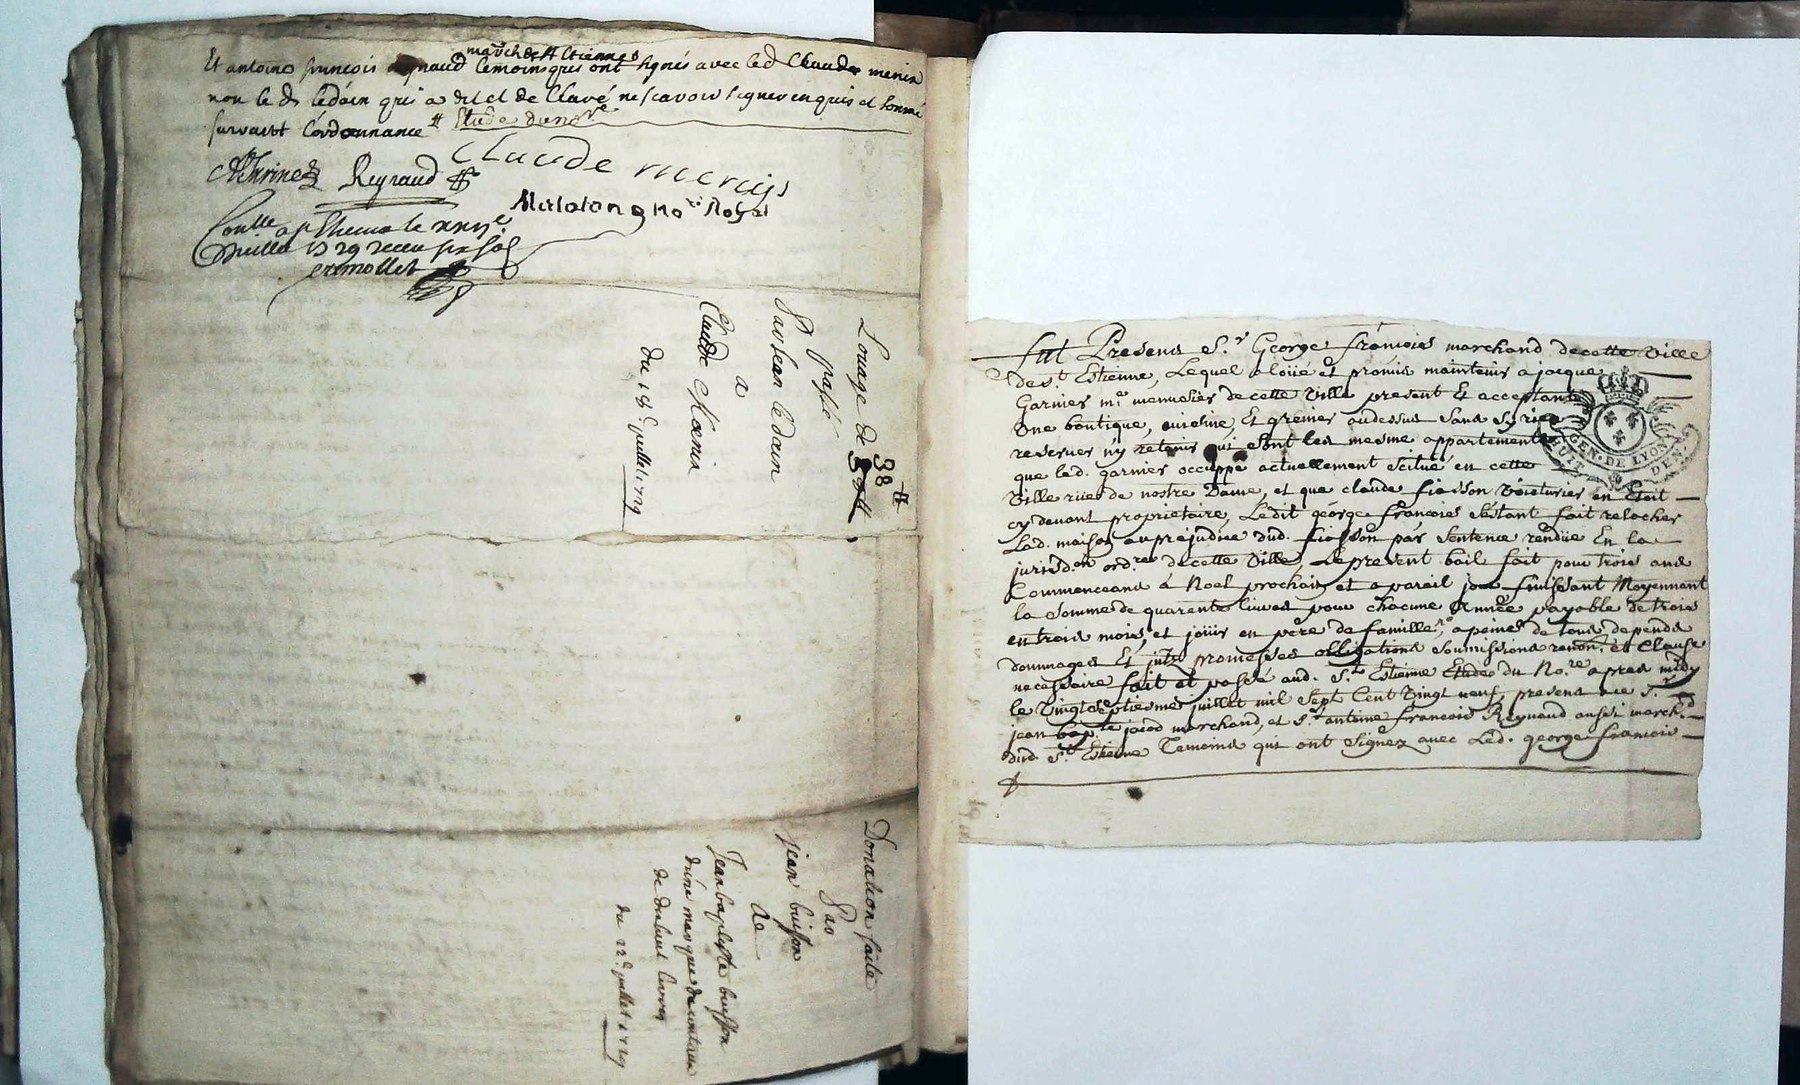 march. de St Etienne
Et antoine francois Reynaud temoins qui ont signés avec led Claude menin
non le d. ledain qui a dit et de clavé ne scavoir signer enquis et sommé
suivant l'ordonnance # Etude du no.re
Claude menijs
Reynaud
no.re Royal
juillet 1729 receu six sols
Louage de 38 ₶
passé
Par Jean ledain
a
Claude Menin
du 18.e juillet 1729
Donation faite
Par
jean buisson
de
Jean baptiste buisson
d'une marque de couteau
du 22.e juillet 1729
fut Presens S.r George francois marchand de cette Ville
de S.t Estienne, Lequel a loüé et promis maintenir a jacque
Garnier m.e menuisier de cette Ville present Et acceptant
Une boutique, cuisine, Et grenier audessus sans s'y rien
reserver n'y retenir qui sont les mesme appartements
que led. garnier occuppe actuellement scitué en cette
Ville rüe de nostre Dame, et que claude fiasson Voiturier en Etoit
cy devant proprietaire, Ledit george francois s'estant fait relacher
Lad. maison au prejudice dud. fiasson par Sentence rendüe En la
jurisd.on ord.re de cette Ville, Le present bail fait pour trois ans
Commenceans à Noel prochain et a pareil jour finissant Moyennant
la Somme de quarante livres pour chacune Année payable de trois
en trois mois, et joüir en pere de famille, a peine de tous depends
dommages Et jnts promesses obligations soumissions renon. et Clause
necessaire fait et passé aud. S.t Estienne Etude du No.re apres midy
le Vingtseptiesme juillet mil Sept Cent Vingt neuf, presens S.r
jean bap.te jacod marchand, et S.r antoine francois Reynaud aussi march.d
dud. S.t Estienne Temoins qui ont signez avec Led. george francois
GEN. DE LYON
HUIT DEN.